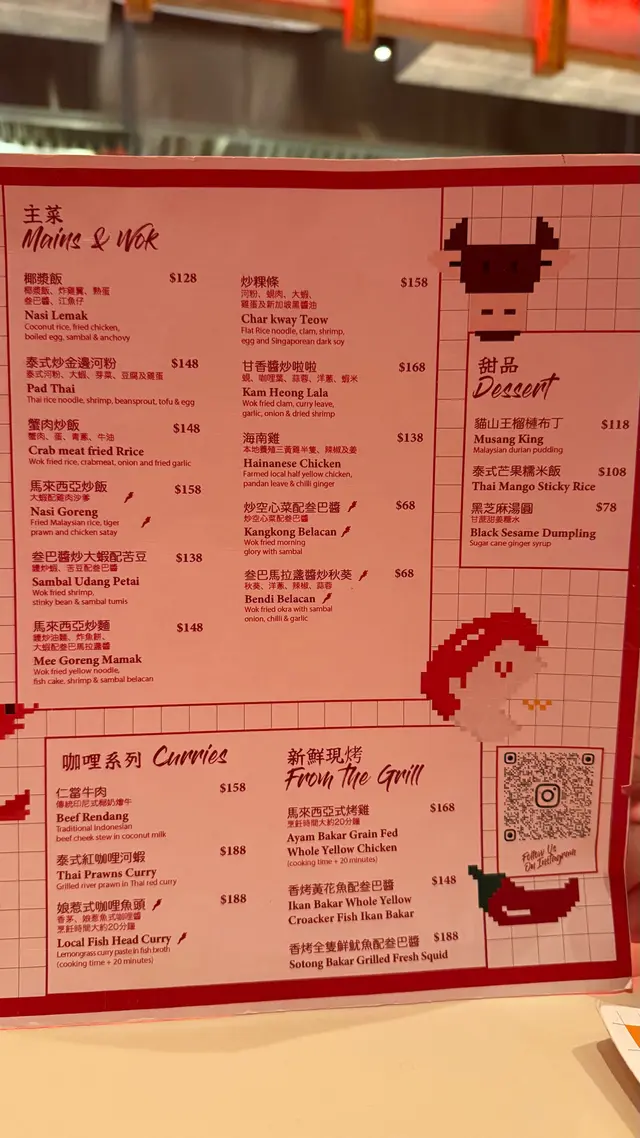 主菜
Mains & Wok
椰漿飯 $128
椰漿飯、炸雞翼、熟蛋
叁巴醬、江魚仔
Nasi Lemak
Coconut rice, fried chicken,
boiled egg, sambal & anchovy
泰式炒金邊河粉 $148
泰式河粉、大蝦、芽菜、豆腐及雞蛋
Pad Thai
Thai rice noodle, shrimp, beansprout, tofu & egg
蟹肉炒飯 $148
蟹肉、蛋、青蔥、牛油
Crab meat fried Rrice
Wok fried rice, crabmeat, onion and fried garlic
馬來西亞炒飯 $158
大蝦配雞肉沙爹
Nasi Goreng
Fried Malaysian rice, tiger
prawn and chicken satay
叁巴醬炒大蝦配苦豆 $138
鑊炒蝦、苦豆配叁巴醬
Sambal Udang Petai
Wok fried shrimp,
stinky bean & sambal tumis
馬來西亞炒麵 $148
鑊炒油麵、炸魚餅、
大蝦配叁巴馬拉盞醬
Mee Goreng Mamak
Wok fried yellow noodle,
fish cake, shrimp & sambal belacan
炒粿條 $158
河粉、蜆肉、大蝦、
雞蛋及新加坡黑醬油
Char kway Teow
Flat Rice noodle, clam, shrimp,
egg and Singaporean dark soy
甘香醬炒啦啦 $168
蜆、咖哩葉、蒜蓉、洋蔥、蝦米
Kam Heong Lala
Wok fried clam, curry leave,
garlic, onion & dried shrimp
海南雞 $138
本地養殖三黃雞半隻、辣椒及姜
Hainanese Chicken
Farmed local half yellow chicken,
pandan leave & chilli ginger
炒空心菜配叁巴醬 $68
炒空心菜配叁巴醬
Kangkong Belacan
Wok fried morning
glory with sambal
叁巴馬拉盞醬炒秋葵 $68
秋葵、洋蔥、辣椒、蒜蓉
Bendi Belacan
Wok fried okra with sambal
onion, chilli & garlic
甜品
Dessert
貓山王榴槤布丁 $118
Musang King
Malaysian durian pudding
泰式芒果糯米飯 $108
Thai Mango Sticky Rice
黑芝麻湯圓 $78
甘蔗甜姜糖水
Black Sesame Dumpling
Sugar cane ginger syrup
咖哩系列 Curries
仁當牛肉 $158
傳統印尼式椰奶燴牛
Beef Rendang
Traditional Indonesian
beef cheek stew in coconut milk
泰式紅咖哩河蝦 $188
Thai Prawns Curry
Grilled river prawn in Thai red curry
娘惹式咖哩魚頭 $188
香茅、娘惹魚式咖哩醬
烹飪時間大約20分鐘
Local Fish Head Curry
Lemongrass curry paste in fish broth
(cooking time + 20 minutes)
新鮮現烤
From the Grill
馬來西亞式烤雞 $168
烹飪時間大約20分鐘
Ayam Bakar Grain Fed
Whole Yellow Chicken
(cooking time + 20 minutes)
香烤黃花魚配叁巴醬 $148
Ikan Bakar Whole Yellow
Croacker Fish Ikan Bakar
香烤全隻鮮魷魚配叁巴醬 $188
Sotong Bakar Grilled Fresh Squid
Follow Us
On Instagram